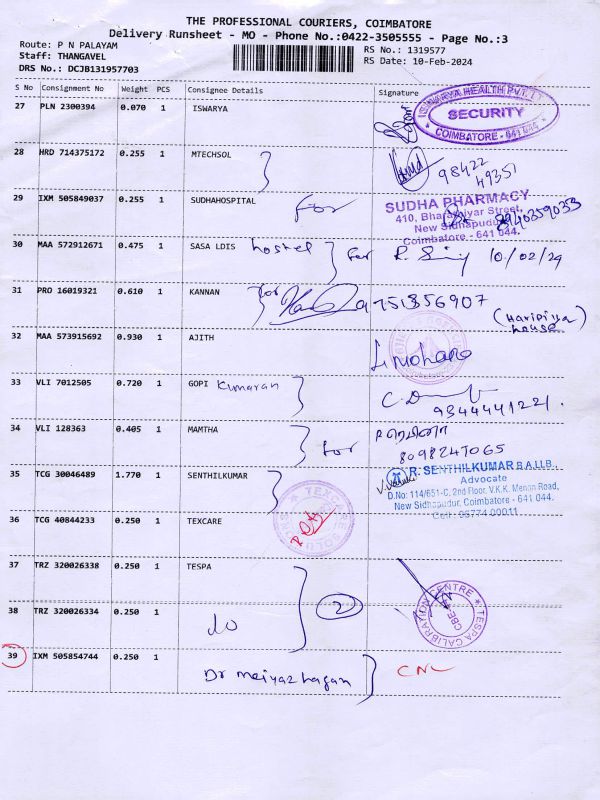 THE PROFESSIONAL COURIERS, COIMBATORE
Delivery Runsheet - MO - Phone No.:0422-3505555 - Page No.:3
Route: P N PALAYAM
RS No.: 1319577
Staff: THANGAVEL
RS Date: 10-Feb-2024
DRS No.: DCJB131957703
S No Consignment No Weight PCS Consignee Details Signature
27 PLN 2300394 0.070 1 ISWARYA
ISWARYA HEALTH PVT LTD
SECURITY
COIMBATORE - 641 044.
28 HRD 714375172 0.255 1 MTECHSOL
98422
49351
29 IXM 505849037 0.255 1 SUDHAHOSPITAL for
SUDHA PHARMACY
410, Bharathiyar Street,
New Sidhapudur,
Coimbatore - 641 044.
30 MAA 572912671 0.475 1 SASA LDIS hostel for 10/02/24
31 PRO 16019321 0.610 1 KANNAN for
(Haripiya
house)
32 MAA 573915692 0.930 1 AJITH
33 VLI 7012505 0.720 1 GOPI Kumaran
9344441221.
34 VLI 128363 0.405 1 MAMTHA for
8098247065
35 TCG 30046489 1.770 1 SENTHILKUMAR
R. SENTHILKUMAR B.A.LLB.,
Advocate
D.No: 114/651-C, 2nd Floor, V.K.K. Menon Road,
New Sidhapudur, Coimbatore - 641 044.
Cell : 98774 00011
36 TCG 40844233 0.250 1 TEXCARE
37 TRZ 320026338 0.250 1 TESPA
2
TESPA CALIBRATION CENTRE
38 TRZ 320026334 0.250 1 do
39 IXM 505854744 0.250 1
Dr meiyazhagan CNL